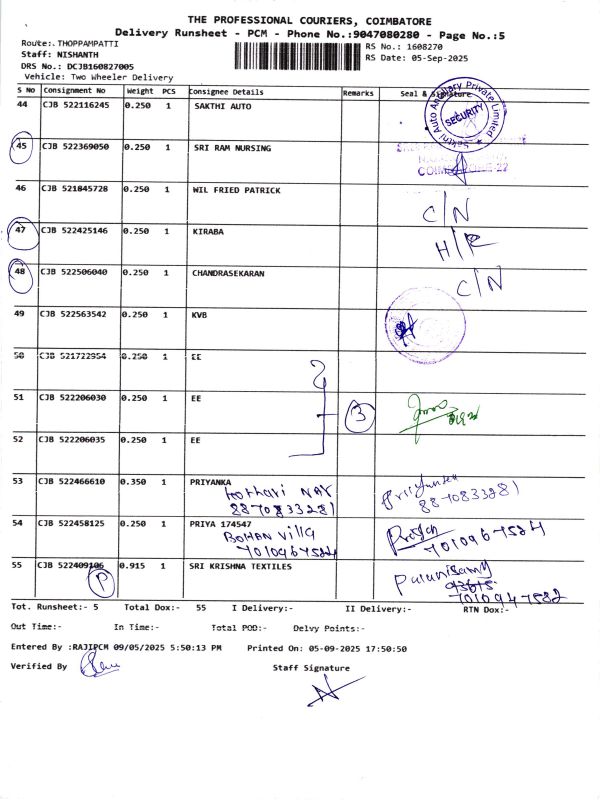 THE PROFESSIONAL COURIERS, COIMBATORE
Delivery Runsheet - PCM - Phone No.:9047080280 - Page No.:5
Route:.THOPPAMPATTI
Staff: NISHANTH
DRS No.: DCJB160827005
Vehicle: Two Wheeler Delivery
RS No.: 1608270
RS Date: 05-Sep-2025
S No Consignment No Weight PCS Consignee Details Remarks Seal & Signature
44 CJB 522116245 0.250 1 SAKTHI AUTO
Sakthi Auto Ancillary Private Limited
SECURITY
45 CJB 522369050 0.250 1 SRI RAM NURSING
46 CJB 521845728 0.250 1 WIL FRIED PATRICK C/N
47 CJB 522425146 0.250 1 KIRABA H/R
48 CJB 522506040 0.250 1 CHANDRASEKARAN C/N
49 CJB 522563542 0.250 1 KVB
50 CJB 521722954 0.250 1 EE
51 CJB 522206030 0.250 1 EE 3
52 CJB 522206035 0.250 1 EE
53 CJB 522466610 0.350 1 PRIYANKA
8870833281 8870833281
54 CJB 522458125 0.250 1 PRIYA 174547
Villa
7010967524 7010967524
55 CJB 522409106 0.915 1 SRI KRISHNA TEXTILES Palanisamy
P
Tot. Runsheet:- 5 Total Dox:- 55 I Delivery:- II Delivery:- RTN Dox:-
Out Time:- In Time:- Total POD:- Delvy Points:-
Entered By :RAJIPCM 09/05/2025 5:50:13 PM Printed On: 05-09-2025 17:50:50
Verified By Staff Signature